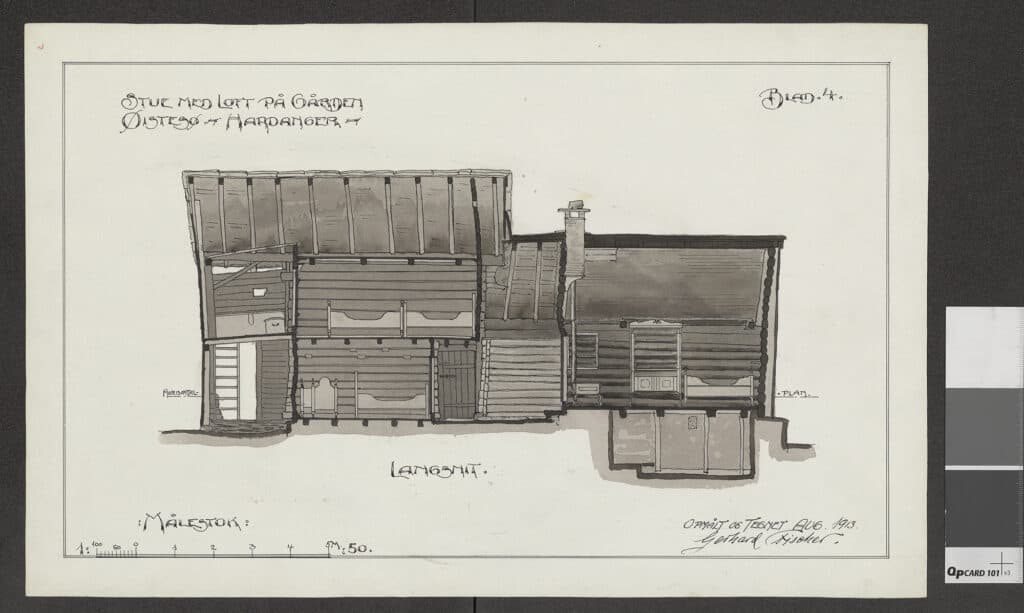 STUE MED LOFT PÅ GÅRDEN
ØISTESØ HARDANGER
BLAD. 4.
PLAN.
LANGSNIT.
:MÅLESTOK:
1: 100 50 0 1 2 3 4 5 M: 50.
OPMÅLT OG TEGNET AUG. 1913.
Gerhard Fischer.
QPCARD 101 v3